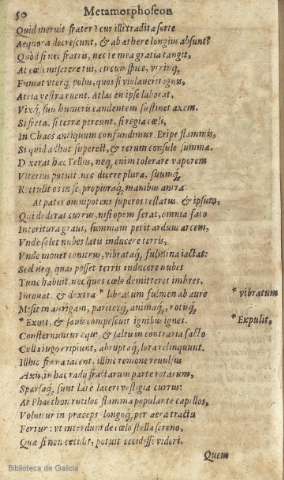 50 Metamorphoseon
Quid meruit frater? cur illi tradita sorte
Aequora decrescunt, & ab aethere longius absunt?
Quod si nec fratris, nec te mea gratia tangit,
At coeli miserere tui, circumspice, utrũq;
Fumat uterq; polus, quos si violaverit ignis,
Atria vestra ruent. Atlas en ipse laborat,
Vixq; suis humeris candentem sustinet axem.
Si freta, si terrae pereunt, si regia coeli,
In Chaos antiquum confundimur. Eripe flammis,
Si quid adhuc superest, & rerum consule summae.
Dixerat haec Tellus, neq; enim tolerare vaporem
Vlterius potuit, nec dicere plura, suumq;
Rettulit os in se, propioraq; manibus antra.
At pater omnipotens superos testatus, & ipsum,
Qui dederat currus, nisi opem ferat, omnia fato
Interitura gravi, summam petit arduus arcem,
Vnde solet nubes latis inducere terris,
Vnde movet tonitrus, vibrataq; fulmina iactat:
Sed neq; quas posset terris inducere nubes
Tunc habuit, nec quos coelo demitteret imbres,
Intonat, & dextra * libratum fulmen ab aure * vibratum
Misit in aurigam, pariterq; animaq;, rotisq;
* Exuit, & saevis compescuit ignibus ignes. * Expulit,
Consternantur equi, & saltu in contraria facto
Colla iugo eripiunt, abruptaq; lora relinquunt.
Illic frena iacent, illic temone revulsus
Axis, in hac radii fractarum parte rotarum,
Sparsaq; sunt late laceri vestigia currus.
At Phaethon rutilos flamma populante capillos,
Volvitur in praeceps, longoq; per aera tractu
Fertur: ut interdum de coelo stella sereno,
Quae si non cecidit, potuit cecidisse videri.
Quem
Biblioteca de Galicia